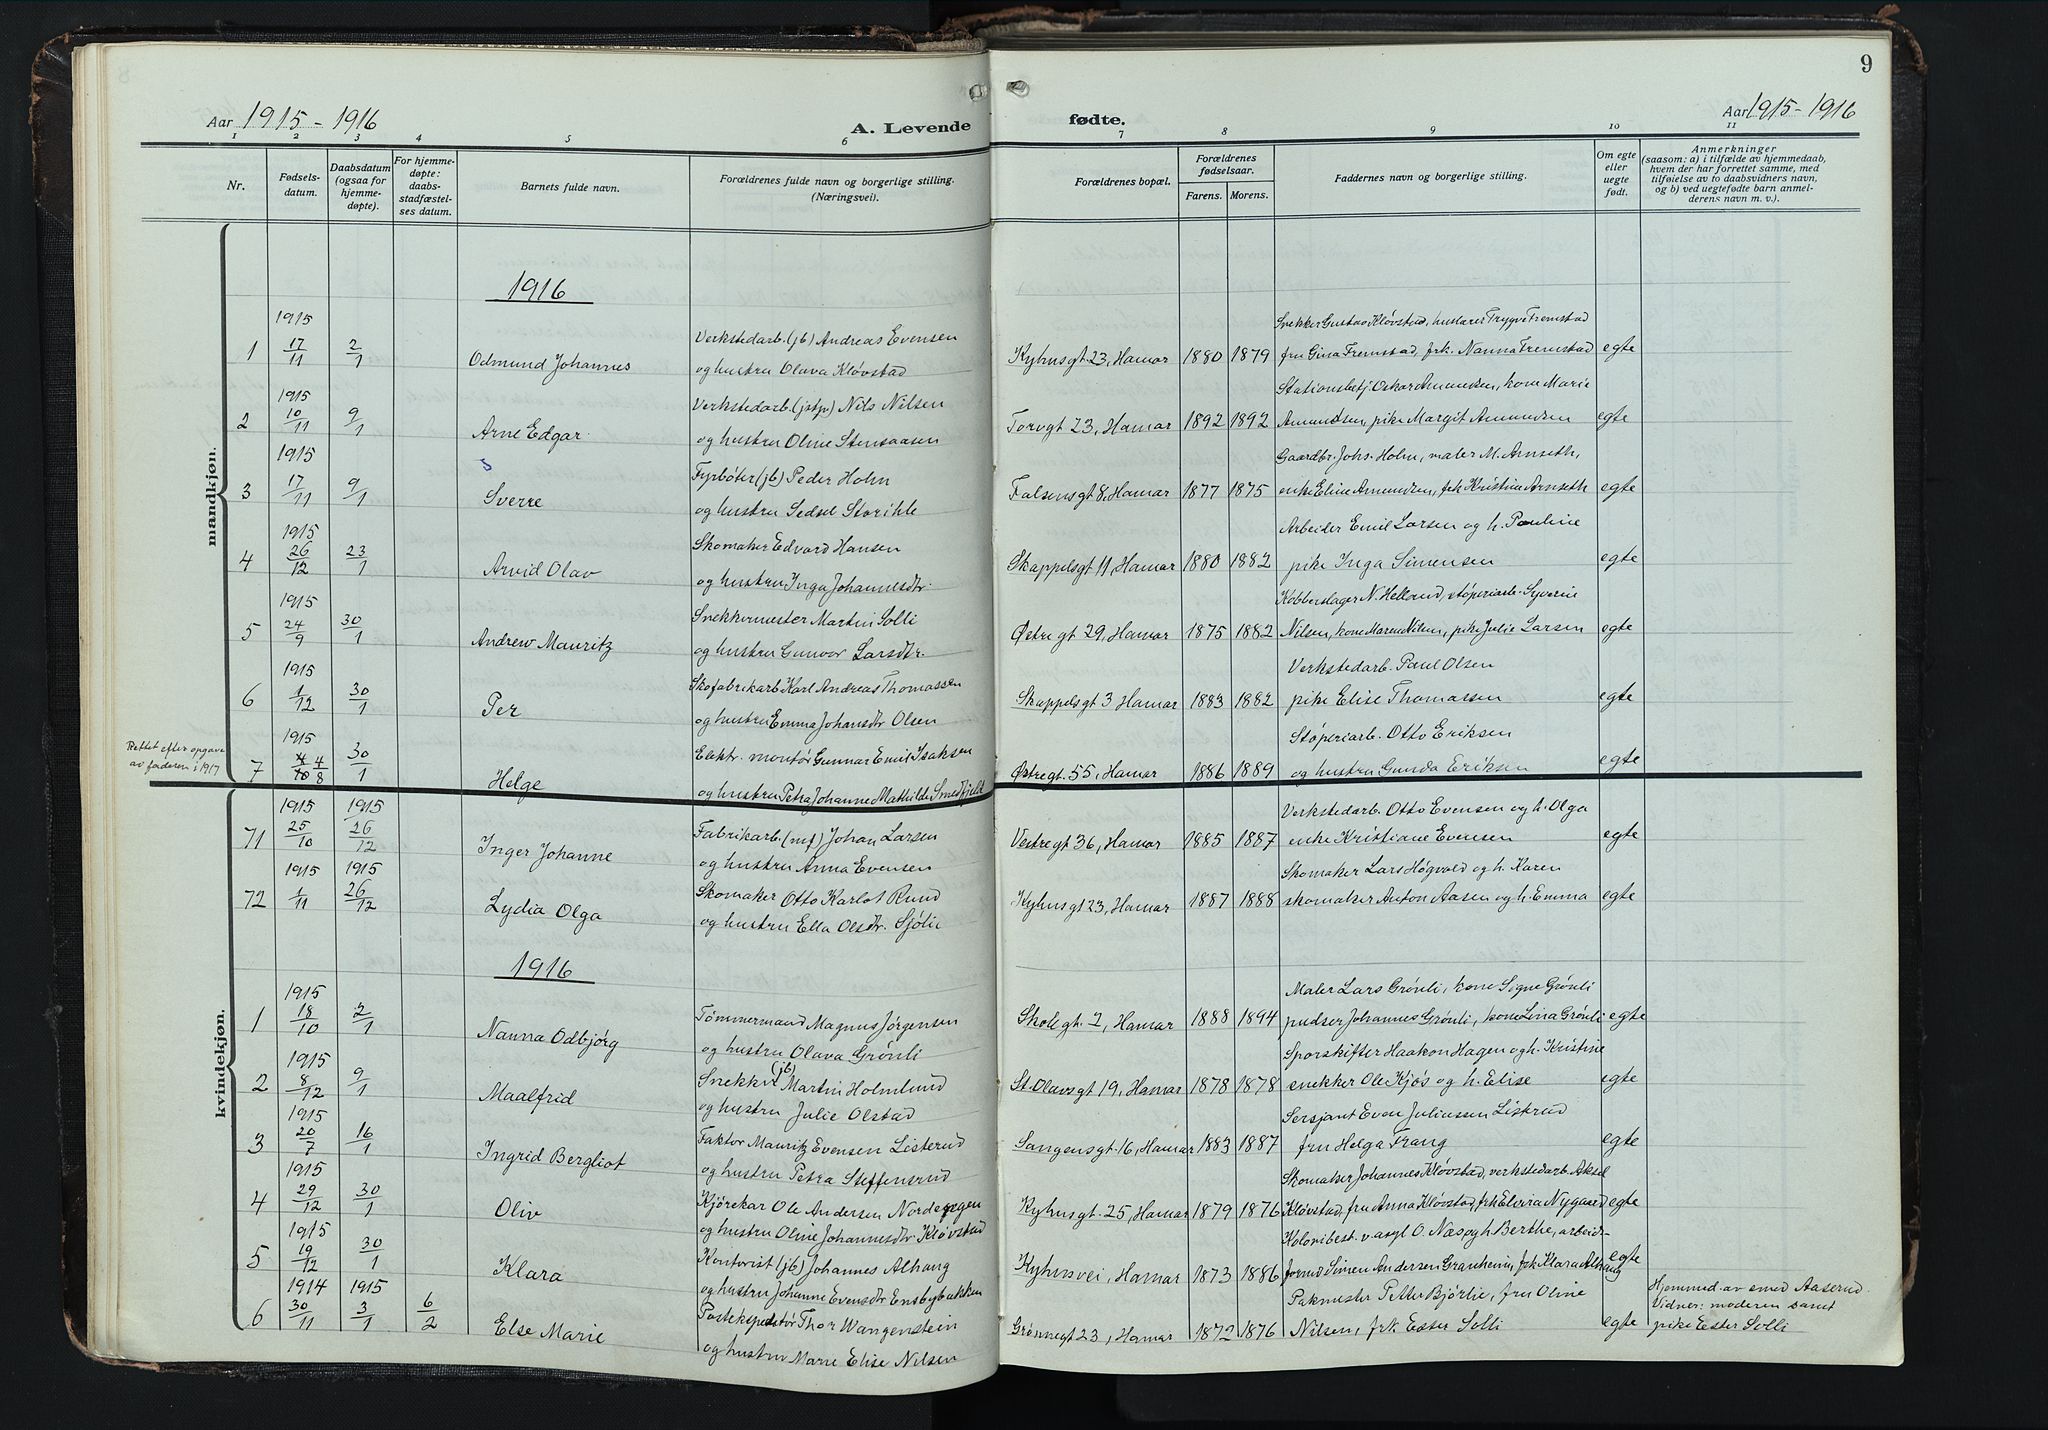 9
Aar 1915-1916
A. Levende fødte.
Aar 1915-1916
1 2 3 4 5 6 7 8 9 10 11
Nr.
Fødsels-
datum.
Daabsdatum
(ogsaa for
hjemme-
døpte).
For hjemme-
døpte:
daabs-
stadfæstel-
ses datum.
Barnets fulde navn.
Forældrenes fulde navn og borgerlige stilling.
(Næringsvei).
Forældrenes bopæl.
Forældrenes
fødselsaar.
Farens. Morens.
Faddernes navn og borgerlige stilling.
Om egte
eller
uegte
født.
Anmerkninger
(saasom: a) i tilfælde av hjemmedaab,
hvem der har forrettet samme, med
tilføielse av to daabsvidners navn,
og b) ved uegtefødte barn anmel-
derens navn m. v.).
mandkjøn.
1916
1915
1 17/11 2/1 Odmund Johannes
Verkstedarb. (jb) Andreas Evensen
og hustru Olava Kløvstad
Kyhusgt 23, Hamar 1880 1879
Snekker Gustav Kløvstad, huslærer Trygve Fremstad
fru Gina Fremstad, frk. Nanna Fremstad egte
1915
2 10/11 9/1 Arne Edgar
Verkstedarb. (jstp) Nils Nilsen
og hustru Oline Stensaasen
Torvgt 23, Hamar 1892 1892
Stationsbetj. Oskar Amundsen, kone Marie
Amundsen, pike Margit Amundsen egte
1915
3 17/11 9/1 Sverre
Fyrbøter (jb) Peder Holm
og hustru Sedsel Storihle
Falsensgt 8, Hamar 1877 1875
Gaardbr. Johs. Holm, maler M. Arnseth,
enke Eline Amundsen, frk Kristine Arnseth egte
1915
4 26/12 23/1 Arvid Olav
Skomaker Edvard Hansen
og hustru Inga Johannesdtr.
Skappelsgt 11, Hamar 1880 1882
Arbeider Emil Larsen og h. Pauline
pike Inga Simensen egte
1915
5 24/9 30/1 Andrew Mauritz
Snekkermester Martin Solli
og hustru Gunvor Larsdtr.
Østregt 29, Hamar 1875 1882
Kobberslager N. Helland, støperiarb. Syverin
Nilsen, kone Maren Nilsen, pike Julie Larsen egte
1915
6 1/12 30/1 Per
Skofabrikarb Karl Andreas Thomassen
og hustru Emma Johansdtr Olsen
Skappelsgt 3 Hamar 1883 1882
Verkstedarb. Paul Olsen
pike Elise Thomassen egte
Rettet efter opgave
av faderen i 1917
1915
7 4/8 30/1 Helge
Elektr. montør Gunnar Emil Isaksen
og hustru Petra Johanne Mathilde Smedfjeld
Østregt. 55, Hamar 1886 1889
Støperiarb. Otto Eriksen
og hustru Gunda Eriksen egte
kvindekjøn.
1915 1915
71 25/10 26/12 Inger Johanne
Fabrikarb. (mf) Johan Larsen
og hustru Anna Evensen
Vestregt 36, Hamar 1885 1887
Verkstedarb. Otto Evensen og h. Olga
enke Kristiane Evensen egte
1915 1915
72 1/11 26/12 Lydia Olga
Skomaker Otto Karlot Ruud
og hustru Ella Olsdtr. Sjølie
Kyhusgt 23, Hamar 1887 1888
Skomaker Lars Høgvold og h. Karen
skomaker Anton Aasen og h. Emma egte
1916
1915
1 18/10 2/1 Nanna Odbjørg
Tømmermand Magnus Jørgensen
og hustru Olava Grønli
Skolegt. 2, Hamar 1888 1894
Maler Lars Grønli, kone Signe Grønli
pudser Johannes Grønli, kone Lina Grønli egte
1915
2 8/12 9/1 Maalfrid
Snekker (jb) Martin Holmlund
og hustru Julie Olstad
St. Olavsgt 19, Hamar 1878 1878
Sporskifter Haakon Hagen og h. Kristine
snekker Ole Kjøs og h. Elise egte
1915
3 20/7 16/1 Ingrid Bergliot
Faktor Mauritz Evensen Listerud
og hustru Petra Steffensrud
Sangensgt. 16, Hamar 1883 1887
Sersjant Even Juliussen Listrud
fru Helga Frang egte
1915
4 29/12 30/1 Oliv
Kjørekar Ole Andersen Nordengen
og hustru Oline Johannesdtr Kløvstad
Kyhusgt. 25, Hamar 1879 1876
Skomaker Johannes Kløvstad, verkstedarb. Aksel
Kløvstad, fru Anna Kløvstad, frk Elvira Nygaard egte
1915
5 19/12 30/1 Klara
Kontorist (jb) Johannes Alhaug
og hustru Johanne Evensdtr Ensbybakken
Kyhusvei, Hamar 1873 1886
Kolonibest. v. asyl O. Næsp og h. Berthe, arbeids-
formd Simen Andersen Granheim, frk Klara Alhaug egte
1914 1915
6 30/11 3/1 6/2 Else Marie
Postekspeditør Thor Wangenstein
og hustru Marie Elise Nilsen
Grønnegt 23, Hamar 1872 1876
Pakmester Petter Bjørlie, fru Oline
Nilsen, frk. Ester Solli egte
Hjemmed. av smed Aaserud.
Vidner: moderen samt
pike Ester Solli